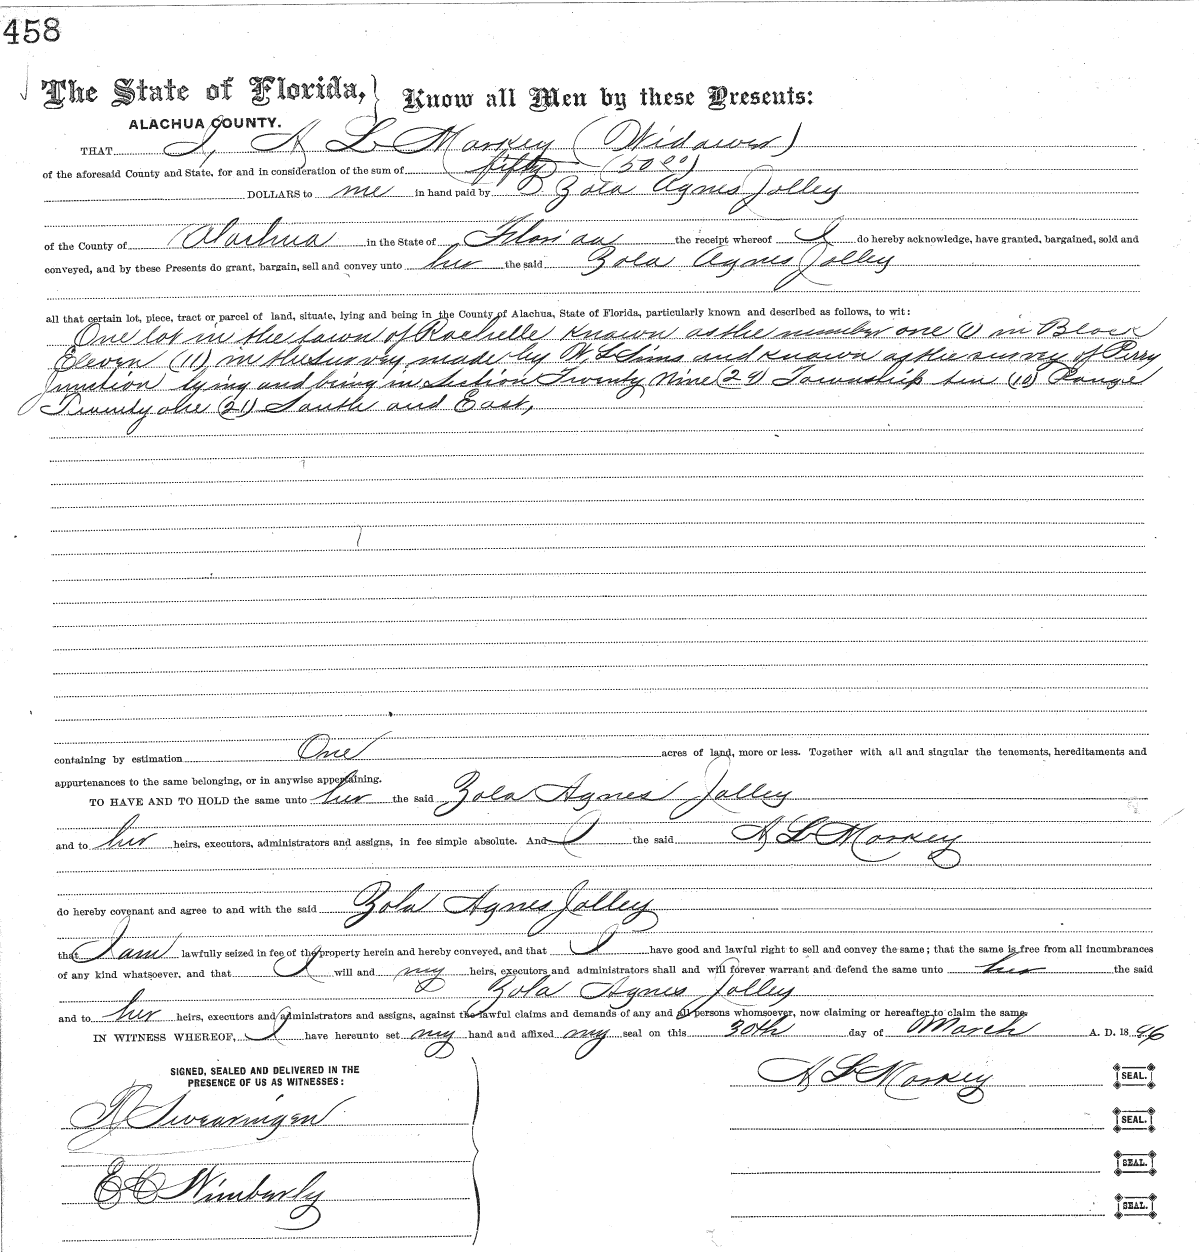 458
The State of Florida, } Know all Men by these Presents:
ALACHUA COUNTY.
THAT I, A L Markey (Widower)
of the aforesaid County and State, for and in consideration of the sum of fifty (50 00)
DOLLARS to me in hand paid by Zola Agnes Jolley
of the County of Alachua in the State of Florida the receipt whereof I do hereby acknowledge, have granted, bargained, sold and
conveyed, and by these Presents do grant, bargain, sell and convey unto her the said Zola Agnes Jolley
all that certain lot, piece, tract or parcel of land, situate, lying and being in the County of Alachua, State of Florida, particularly known and described as follows, to wit:
One lot in the town of Rochelle known as the number one (1) in Block
Eleven (11) in the survey made by W. S Sims and known as the survey of Perry
Junction lying and being in Section Twenty Nine (29) Township ten (10) Range
Twenty one (21) South and East,
containing by estimation One acres of land, more or less. Together with all and singular the tenements, hereditaments and
appurtenances to the same belonging, or in anywise appertaining.
TO HAVE AND TO HOLD the same unto her the said Zola Agnes Jolley
and to her heirs, executors, administrators and assigns, in fee simple absolute. And I the said A L Markey
do hereby covenant and agree to and with the said Zola Agnes Jolley
that I am lawfully seized in fee of the property herein and hereby conveyed, and that I have good and lawful right to sell and convey the same; that the same is free from all incumbrances
of any kind whatsoever, and that I will and my heirs, executors and administrators shall and will forever warrant and defend the same unto her the said
Zola Agnes Jolley
and to her heirs, executors and administrators and assigns, against the lawful claims and demands of any and all persons whomsoever, now claiming or hereafter to claim the same.
IN WITNESS WHEREOF, I have hereunto set my hand and affixed my seal on this 30th day of March A. D. 18 96
SIGNED, SEALED AND DELIVERED IN THE
PRESENCE OF US AS WITNESSES:
A L Markey SEAL.
Swearingen
SEAL.
SEAL.
E C Wimberly
SEAL.